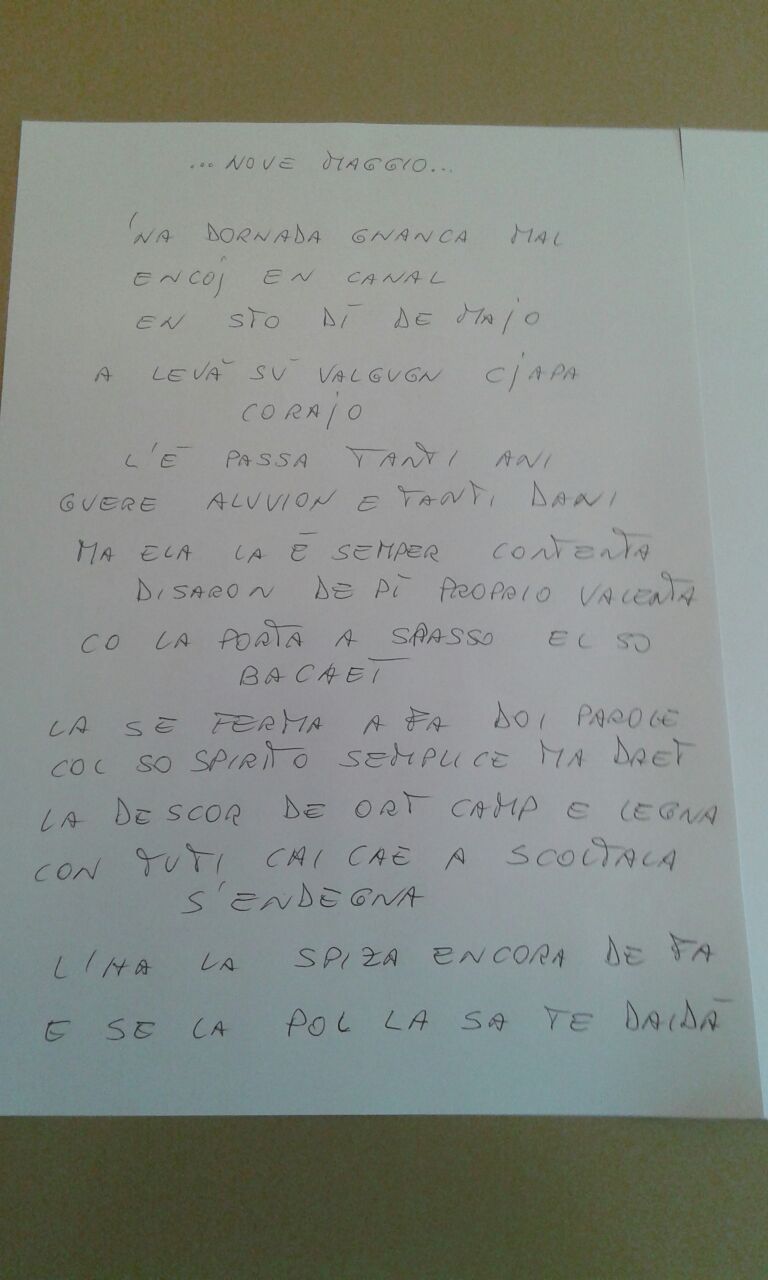 ... NOVE MAGGIO...
'NA DORNADA GNANCA MAL
ENCOJ EN CANAL
EN STO DÌ DE MAJO
A LEVÀ SÙ VALGUGN CJAPA
CORAJO
L'È PASSA TANTI ANI
GUERE ALUVION E TANTI DANI
MA ELA LA È SEMPER CONTENTA
DISARON DE PÌ PROPRIO VALENTA
CO LA PORTA A SPASSO EL SO
BACHET
LA SE FERMA A FA DOI PAROLE
COL SO SPIRITO SEMPLICE MA DRET
LA DESCOR DE ORT CAMP E LEGNA
CON TUTI CHI CHE A SCOLTALA
S'ENDEGNA
L'HA LA SPIZA ENCORA DE FA
E SE LA POL LA SA TE DAIDÀ